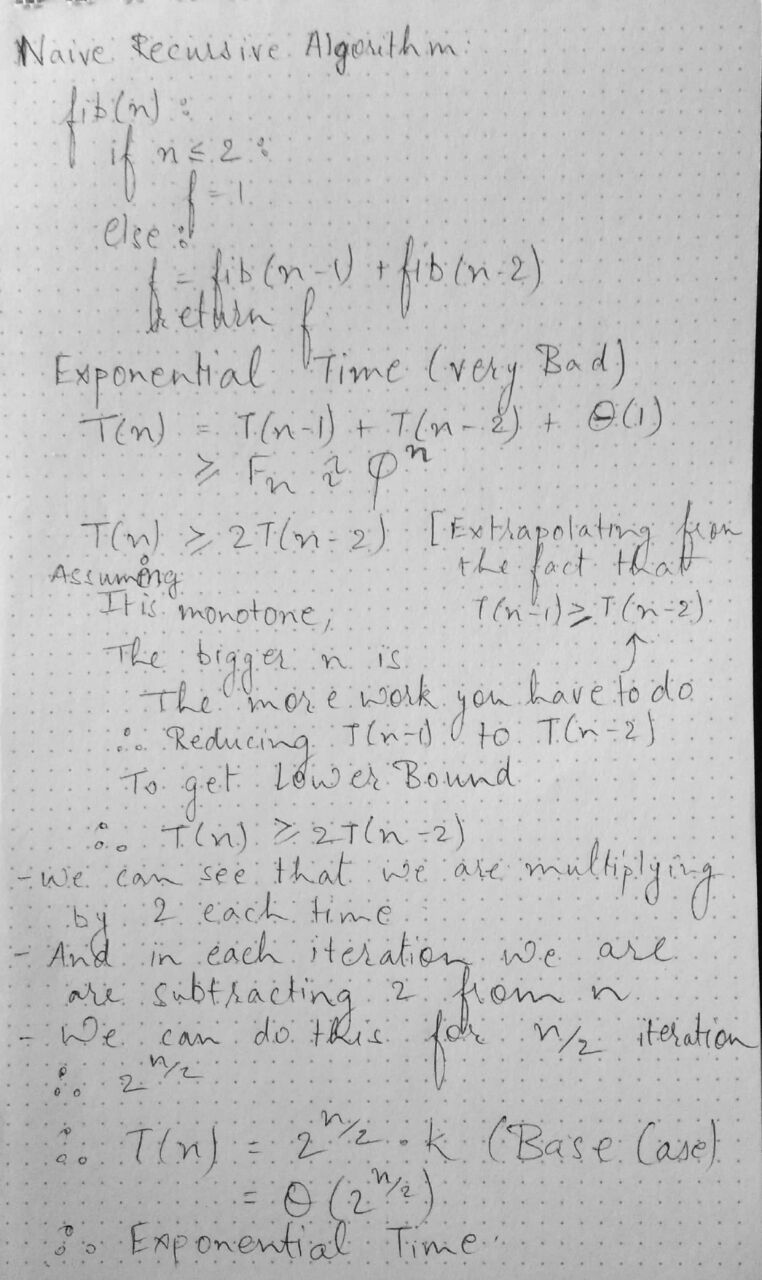 Naive Recursive Algorithm:
fib(n):
if n ≤ 2:
f = 1
else:
f = fib(n-1) + fib(n-2)
Return f
Exponential Time (very Bad)
T(n) = T(n-1) + T(n-2) + Θ(1)
≥ Fn ≈ φ^n
T(n) ≥ 2T(n-2) [Extrapolating from
Assuming the fact that
It is monotone, T(n-1) ≥ T(n-2)
The bigger n is ↑
The more work you have to do
∴ Reducing T(n-1) to T(n-2)
To get Lower Bound
∴ T(n) ≥ 2T(n-2)
- We can see that we are multiplying
by 2 each time
- And in each iteration we are
are subtracting 2 from n
- We can do this for n/2 iteration
∴ 2^n/2
∴ T(n) = 2^n/2 . k (Base Case)
= Θ(2^n/2)
∴ Exponential Time.